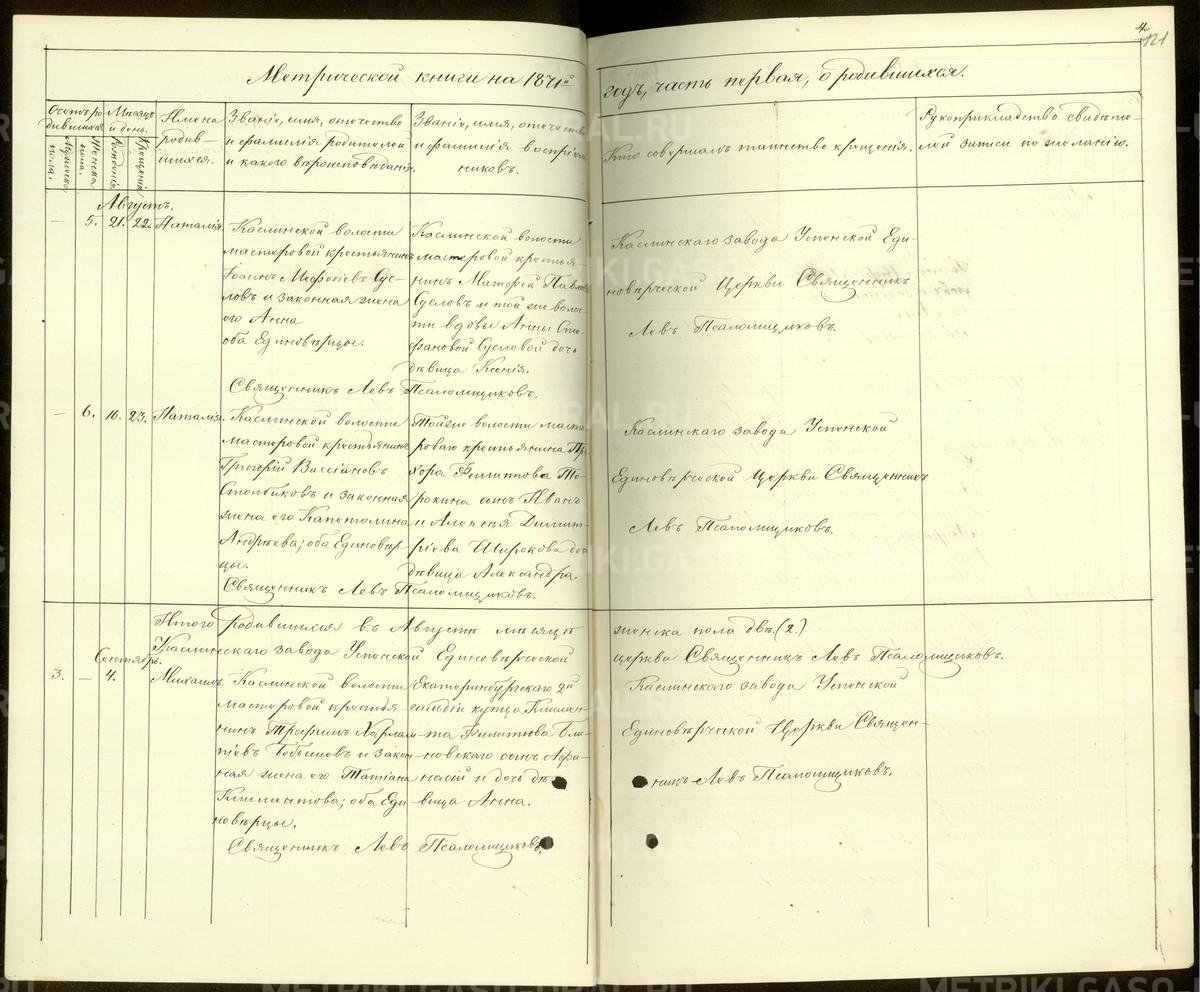 4
121
Метрической книги на 1871й годъ, часть первая, о родившихся.
Счетъ родившихся
Мѣсяцъ и день.
Имена родившихся.
Званіе, имя, отчество и фамилія родителей и какого вѣроисповѣданія.
Званіе, имя, отчество и фамилія воспріемниковъ.
Кто совершалъ таинство крещенія.
Рукоприкладство свидѣтелей записи по желанію.
Мужеска пола.
Женска пола.
Рожденія
Крещенія
Августъ.
— 5. 21. 22. Наталія
Каслинской волости
мастеровой крестьянинъ
Іоаннъ Меѳодіевъ Сус-
ловъ и законная жена
его Анна
оба Единовѣрцы.
Каслинской волости
мастеровой крестья-
нинъ Матѳей Павловъ
Сусловъ и той же воло-
сти вдовы Анны Сте-
фановой Сусловой дочь
дѣвица Ксенія.
Священникъ Левъ Псаломщиковъ.
Каслинскаго завода Успенской Еди-
новѣрческой Церкви Священникъ
Левъ Псаломщиковъ.
— 6. 16. 23. Наталія
Каслинской волости
мастеровой крестьянинъ
Григорій Вассіановъ
Столбиковъ и законная
жена его Капетолина
Андрѣева; оба Единовѣр-
цы.
Тойже волости масте
роваго крестьянина Про
хора Филиппова То-
рокина сынъ Иванъ
и Алексѣя Димит-
ріева Широкова доч
дѣвица Александра
Священникъ Левъ Псаломщиковъ.
Каслинскаго завода Успенской
Единовѣрческой Церкви Священникъ
Левъ Псаломщиковъ.
Итого родившихся въ Августѣ мѣсяцѣ женска пола двѣ. (2.)
Каслинскаго завода Успенской Единовѣрческой церкви Священникъ Левъ Псаломщиковъ.
Сентябрь.
3. — 4. Михаилъ.
Каслинской волости
мастеровой крестья-
нинъ Трофимъ Харлам-
піевъ Бобышевъ и закон-
ная жена его Татіана
Климентова; оба Еди-
новѣрцы.
Екатеринбургскаго 2й
гильдіи купца Климен-
та Филиппова Бли-
новскаго сынъ Аѳа-
насій и дочь дѣ-
вица Анна.
Священникъ Левъ Псаломщиковъ.
Каслинскаго завода Успенской
Единовѣрческой Церкви Священ-
никъ Левъ Псаломщиковъ.
METRIKI.GASO-URAL.RU